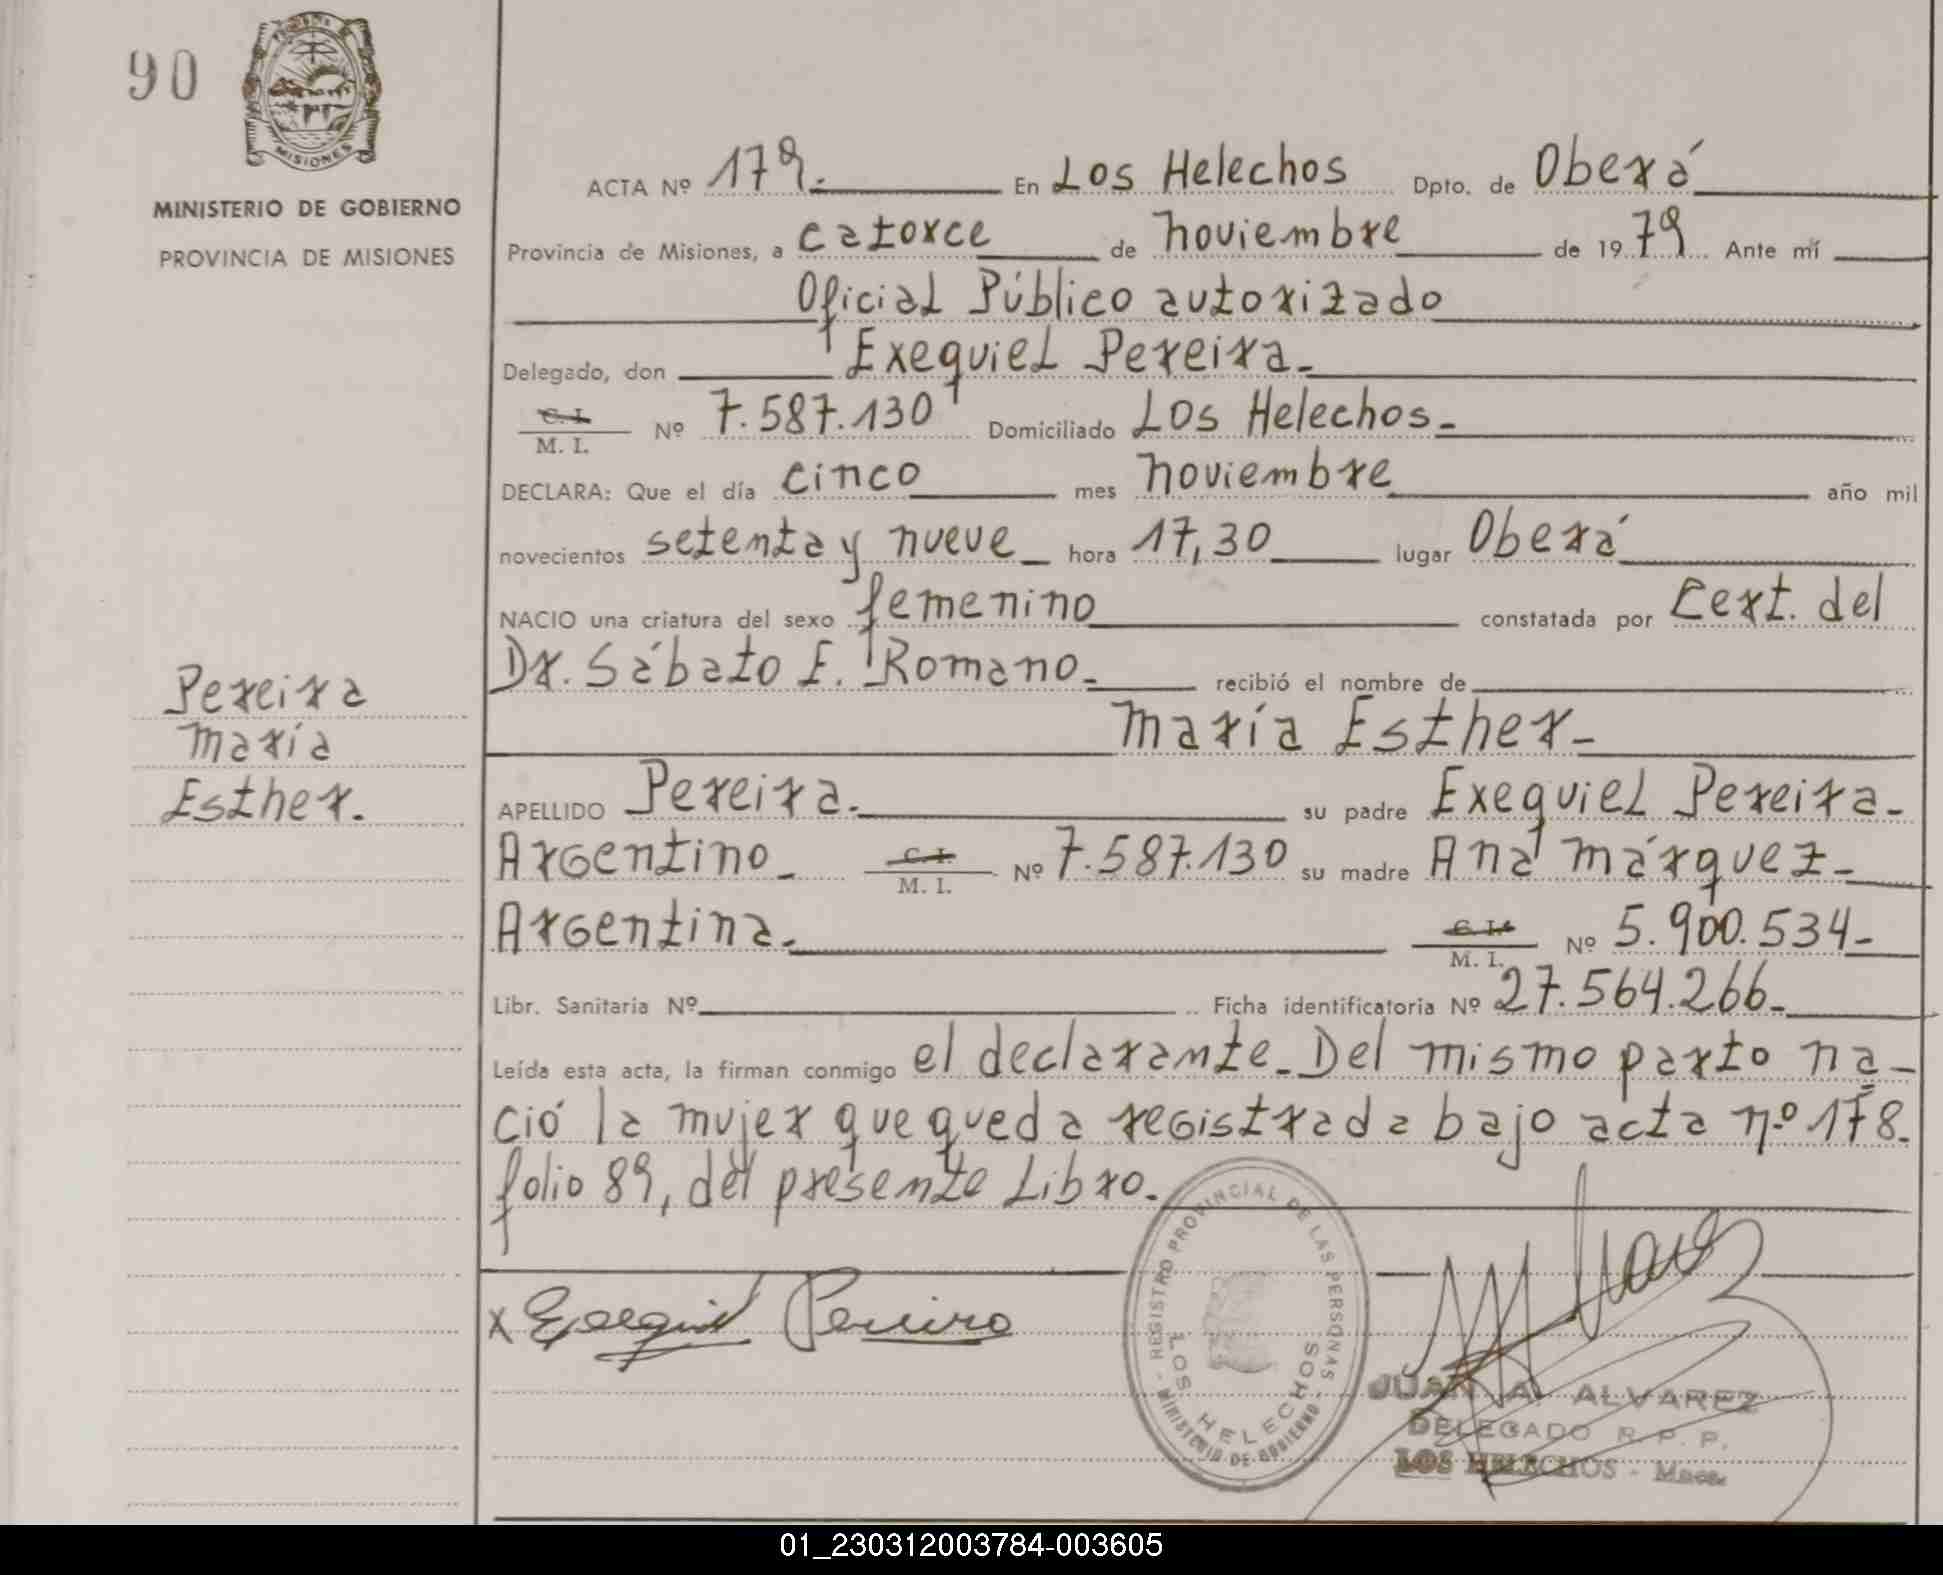 90
MISIONES
MINISTERIO DE GOBIERNO
PROVINCIA DE MISIONES
Pereira
María
Esther.
ACTA Nº 179. En Los Helechos Dpto. de Oberá
Provincia de Misiones, a catorce de noviembre de 1979 Ante mí
Oficial Público autorizado
Delegado, don Exequiel Pereira.
C. I.
M. I. Nº 7.587.130 Domiciliado Los Helechos.
DECLARA: Que el día cinco mes noviembre año mil
novecientos setenta y nueve hora 17,30 lugar Oberá
NACIO una criatura del sexo femenino constatada por Cert. del
Dr. Sábato E. Romano. recibió el nombre de
María Esther.
APELLIDO Pereira. su padre Exequiel Pereira.
Argentino C. I.
M. I. Nº 7.587.130 su madre Ana Márquez.
Argentina. C. I.
M. I. Nº 5.900.534
Libr. Sanitaria Nº Ficha identificatoria Nº 27.564.266
Leída esta acta, la firman conmigo el declarante. Del mismo parto na-
ció la mujer que queda registrada bajo acta nº 178.
folio 89, del presente Libro.
x Exequiel Pereira
REGISTRO PROVINCIAL DE LAS PERSONAS
MINISTERIO DE GOBIERNO
LOS HELECHOS
JUAN A. ALVAREZ
DELEGADO R. P. P.
LOS HELECHOS - Mnes.
01_230312003784-003605